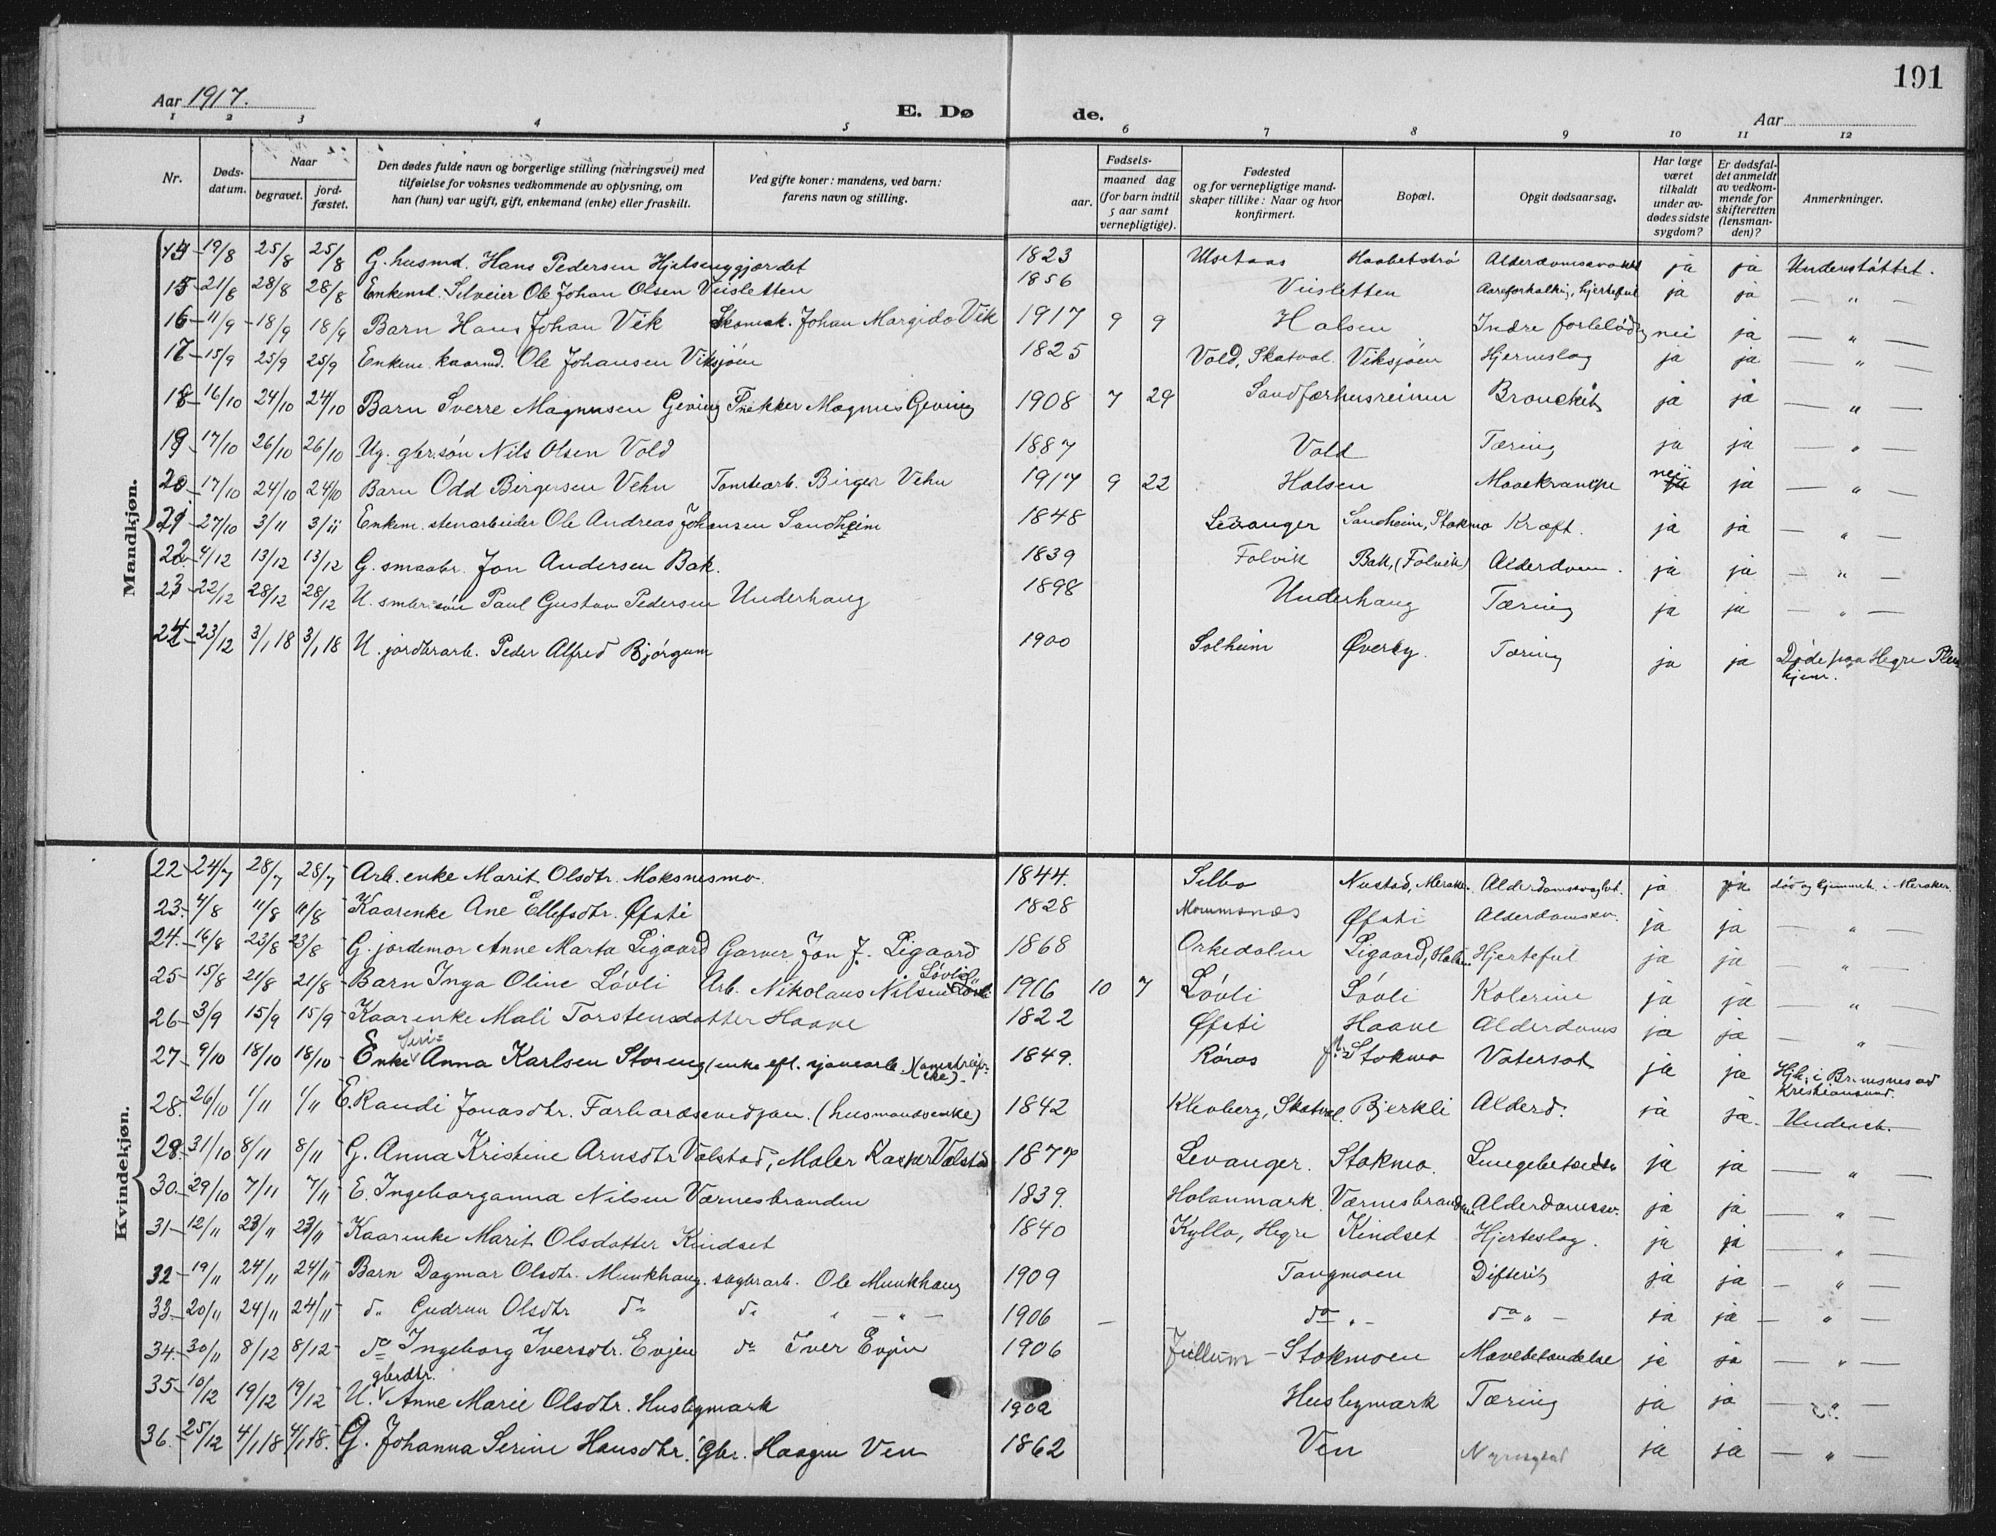 191
Aar 1917.
E. Døde.
Aar
1 2 3 4 5 6 7 8 9 10 11 12
Nr.
Døds-datum.
Naar
begravet.
jord-fæstet.
Den dødes fulde navn og borgerlige stilling (næringsvei) med
tilføielse for voksnes vedkommende av oplysning, om
han (hun) var ugift, gift, enkemand (enke) eller fraskilt.
Ved gifte koner: mandens, ved barn:
farens navn og stilling.
Fødsels-
aar.
maaned dag
(for barn indtil
5 aar samt
vernepligtige).
Fødested
og for vernepligtige mand-
skaper tillike: Naar og hvor
konfirmert.
Bopæl.
Opgit dødsaarsag.
Har læge
været
tilkaldt
under av-
dødes sidste
sygdom?
Er dødsfal-
det anmeldt
av vedkom-
mende for
skifteretten
(lensman-
den)?
Anmerkninger.
Mandkjøn.
14 19/8 25/8 25/8 G. husmd. Hans Pedersen Hjelsenggjærdet 1823 Ulsetaas Haabetstrø ja ja Understøttet.
15 21/8 28/8 28/8 Enkemd. Selveier Ole Johan Olsen Veisletten 1856 Veisletten Aareforkalkn, hjerteful ja ja — " —
16 11/9 18/9 18/9 Barn Hans Johan Vik Skomak. Johan Margido Vik 1917 9 9 Halsen Indre forblødn nei ja — " —
17 15/9 25/9 25/9 Enkem. kaarmd. Ole Johansen Viksjøen 1825 Vold, Skatval Viksjøen Hjerneslag ja ja — " —
18 16/10 24/10 24/10 Barn Sverre Magnusen Geving Snekker Magnus Geving 1908 7 29 Sandfærhusreinen Bronckit ja ja — " —
19 17/10 26/10 26/10 Ug. gbr.søn Nils Olsen Vold 1887 Vold Tæring ja ja — " —
20 17/10 24/10 24/10 Barn Odd Birgersen Vehn Tomtearb. Birger Vehn 1917 9 22 Halsen Mavekrampe nei ja — " —
21 27/10 3/11 3/11 Enkem. stenarbeider Ole Andreas Johansen Sandheim 1848 Levanger Sandheim, Stokmo Kræft. ja ja — " —
22 4/12 13/12 13/12 G. smaabr. Jon Andersen Bak. 1839 Folvik Bak, (Folvik) Alderdom. ja ja — " —
23 22/12 28/12 28/12 U. smbr.søn Paul Gustav Pedersen Underhaug 1898 Underhaug Tæring ja ja — " —
24 23/12 3/1 18 3/1 18 U. jordbrarb. Peder Alfred Bjørgum 1900 Solheim Øverby. Tæring ja ja Døde paa Hegre Pleie-
hjem.
Kvindekjøn.
22 24/7 28/7 28/7 Arb. enke Marit Olsdtr. Moksnesmo. 1844. Selbo Nustad, Meraker Alderdomssvaghet. ja ja død og hjemmeh. i Meraker.
23 4/8 11/8 11/8 Kaarenke Ane Ellefsdtr. Øfsti 1828 Mommsnæs Øfsti Alderdomssv. ja ja — " —
24. 16/8 23/8 23/8 G. jordemor Anne Marta Ligaard Garver Jon J. Ligaard 1868 Orkedalen Ligaard, Halsen Hjerteful ja ja — " —
25 15/8 21/8 21/8 Barn Inga Oline Løvli Arb. Nikolaus Nilsen Løvli 1916 10 7 Løvli Løvli Kolerine ja ja — " —
26 3/9 15/9 15/9 Kaarenke Mali Torstensdatter Haave 1822 Øfsti Haave Alderdoms ja ja — " —
27 9/10 18/10 18/10 Enke Siri Anna Karlsen Storeng (enke eft. sjauearb. ) 1849. Røros Stokmo Vatersot ja ja Hjh. i Bremsnes ved
Kristiansund.
28. 26/10 1/11 1/11 E. Randi Jonasdtr. Forbordsvedjan. (husmandsenke) 1842 Klevberg, Skatval. Bjerkli Alderd. ja ja. Underst.
29. 31/10 8/11 8/11 G. Anna Kristine Arnsdtr Valstad, Maler Kasper Valstad 1877 Levanger. Stokmo. Lungebetændelse ja ja — " —
30. 29/10 7/11 7/11 E. Ingeborganna Nilsen Værnesbranden 1839. Holanmark. Værnesbranden Alderdomssv. ja ja — " —
31 12/11 23/11 23/11 Kaarenke Marit Olsdatter Kindset 1840 Kyllo, Hegre Kindset Hjerteslag. ja ja — " —
32 19/11 24/11 24/11 Barn Dagmar Olsdtr. Munkhaug. sagbrarb. Ole Munkhaug 1909 Tangmoen Difterit ja ja — " —
33 20/11 24/11 24/11 do Gudrun Olsdtr do do " — " — 1906 — do " - do " - ja ja — " —
34. 30/11 8/12 8/12 do Ingeborg Iversdtr. Evjen do Iver Evjen 1906 Jullum - Stokmoen Mavebetændelse ja ja — " —
35 10/12 19/12 19/12 U. gbrdtr. Anne Marie Olsdtr. Husbymark 1902 Husbymark Tæring ja ja — " —
36. 25/12 4/1 18 4/1 18. G. Johanna Serine Hansdtr. Gbr. Haagen Ven 1862 Ven Nyresykd ja ja — " —